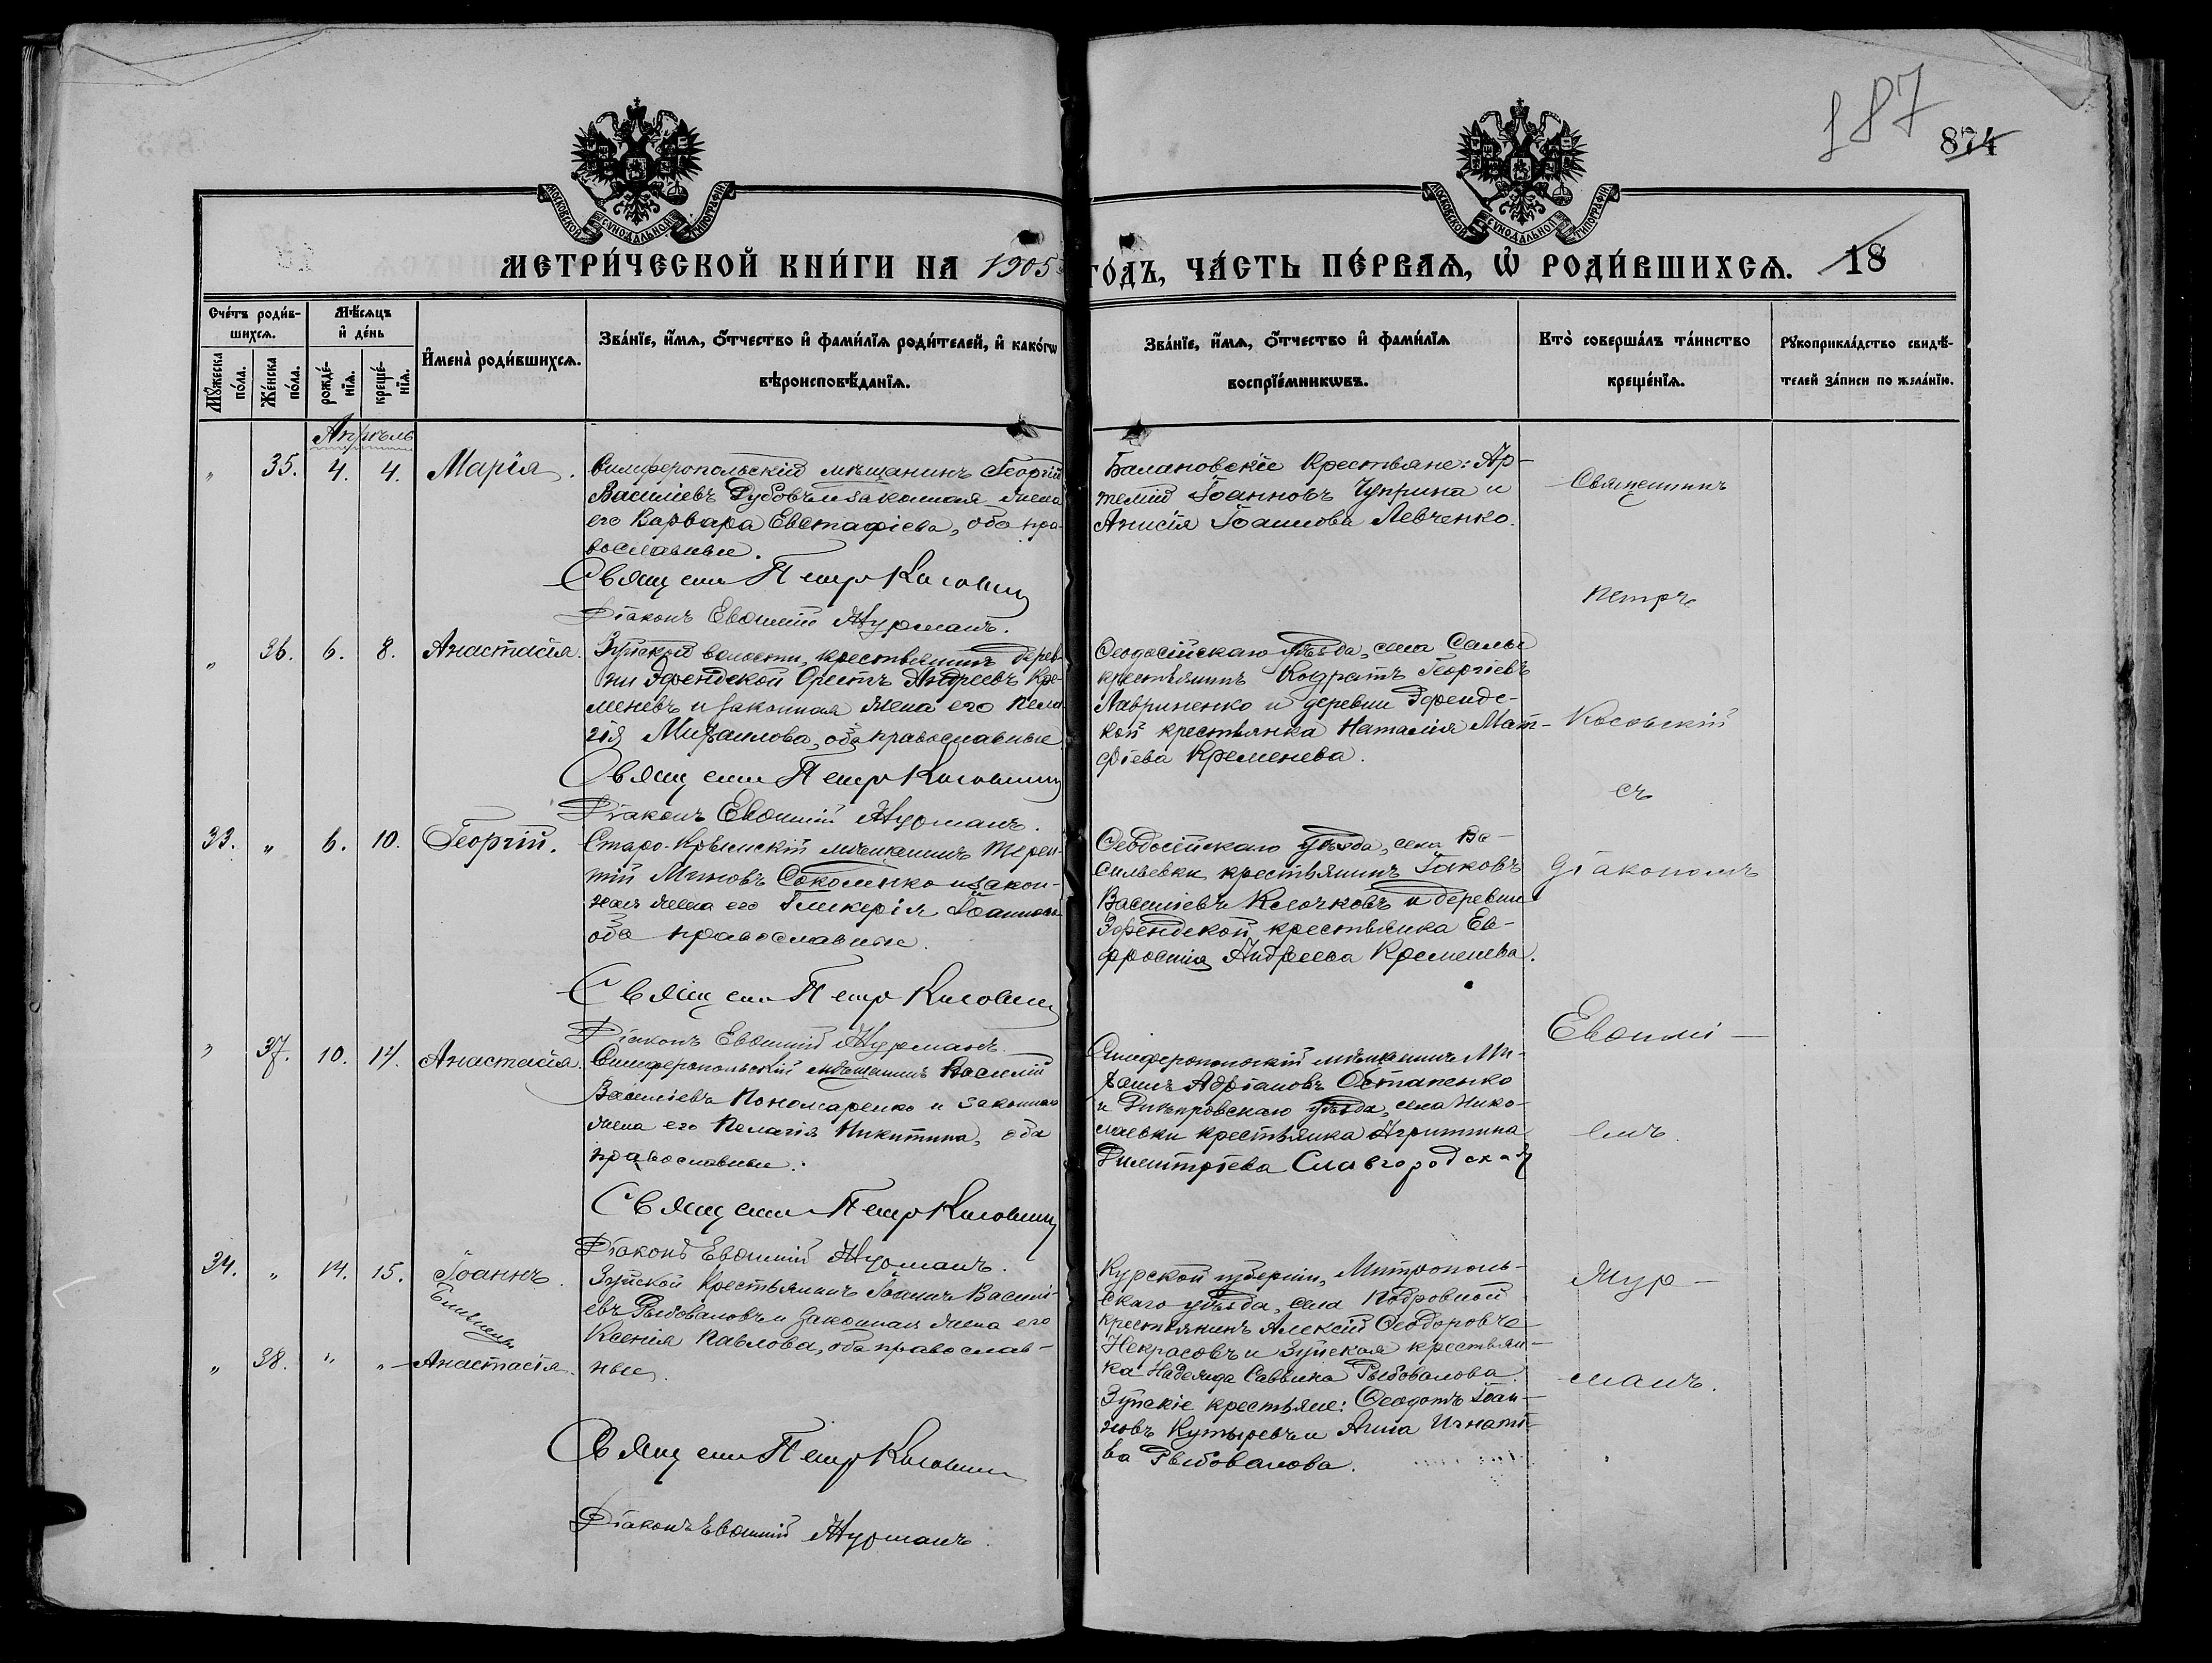 187
874
МОСКОВСКОЙ СѴНОДАЛЬНОЙ ТИПОГРАФІИ
МОСКОВСКОЙ СѴНОДАЛЬНОЙ ТИПОГРАФІИ
МЕТРИ́ЧЕСКОЙ КНИ́ГИ НА 1905 ГО́ДЪ, ЧА́СТЬ ПЕ́РВАЯ, Ѡ҆ РОДИ́ВШИХСѦ. 18
Счетъ роди́в-
шихсѧ.
Мꙋ́жеска по́ла.
Же́нска по́ла.
Мѣ́сяцъ
и҆ де́нь
рожде́-
нїѧ.
креще́-
нїѧ.
И҆мена̀ роди́вшихсѧ.
Зва́нїе, и҆́мѧ, ѻ҆́тчество и҆ фами́лїѧ роди́телей, и҆ како́гѡ
вѣроисповѣ́данїѧ.
Зва́нїе, и҆́мѧ, ѻ҆́тчество и҆ фами́лїѧ
воспрїе́мникѡвъ.
Кто̀ соверша́лъ та́инство
креще́нїѧ.
Рꙋкоприкла́дство свидѣ́-
телей за́писи по жела́нїю.
Апрѣль
" 35. 4. 4. Марія.
Симферопольскій мѣщанинъ Георгій
Василіевъ Дубовъ и законная жена
его Варвара Евстафіева, оба пра-
вославные.
Священ Петр Косовский
Діаконъ Евѳимій Журманъ.
Балановскіе крестьяне: Ар-
темій Іоанновъ Чуприна и
Анисія Іоаннова Левченко.
" 36. 6. 8. Анастасія.
Зуйской волости, крестьянинъ дерев-
ни Эфендской Орестъ Андреевъ Кре-
меневъ и законная жена его Пела-
гія Михаилова, оба православные
Священ Петр Косовский
Діаконъ Евѳимій Журманъ.
Ѳеодосійскаго уѣзда, села Салы
крестьянинъ Кодратъ Георгіевъ
Лавриненко и деревни Эфендс-
кой крестьянка Наталія Мат-
фіева Кременева.
33. " 6. 10. Георгій.
Старо-Крымскій мѣщанинъ Терен-
тій Соколенко и закон-
ная жена его Гликерія Іоаннова
оба православные.
Священ Петр Косовский
Діаконъ Евѳимій Журманъ
Ѳеодосійскаго уѣзда, села Ва-
сильевки крестьянинъ Іаковъ
Василіевъ Клочковъ и деревни
Эфендской крестьянка Ев-
фросинія Андреева Кременева.
" 37. 10. 14. Анастасія.
Симферопольскій мѣщанинъ Василій
Василіевъ Пономаренко и законная
жена его Пелагія Никитина, оба
православные.
Священ Петр Косовский
Діаконъ Евѳимій Журманъ.
Симферопольскій мѣщанинъ Ми-
хаилъ Адріановъ Остапенко
и Днѣпровскаго уѣзда, села Нико-
лаевки крестьянка Агриппина
Димитріева Славгородская
34. " 14. 15. Іоаннъ.
Близнецы
" 38. " " Анастасія.
Зуйской крестьянинъ Іоаннъ Васил-
евъ Рыбоваловъ и законная жена его
Ксенія Павлова, оба православ-
ные.
Священ Петр Косовский
Діаконъ Евѳимій Журманъ.
Курской губерніи, Митрополь-
скаго уѣзда, села
крестьянинъ Алексій Ѳеодоровъ
Некрасовъ и Зуйская крестьян-
ка Надежда Саввина Рыбовалова.
Зуйскіе крестьяне: Ѳеодотъ Іоан-
новъ Кутыревъ и Анна Игнатіе-
ва Рыбовалова.
Священникъ
Петръ
Косовскій
съ
діакономъ
Евѳимі-
емъ
Жур-
маномъ.